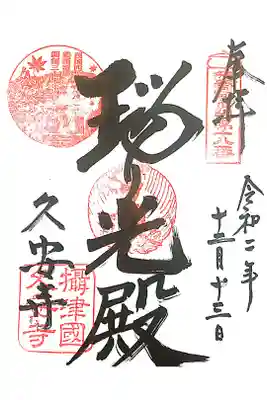 奉拝
令和二年
十二月十三日
瑠り光殿
久安寺
攝津國
久安寺